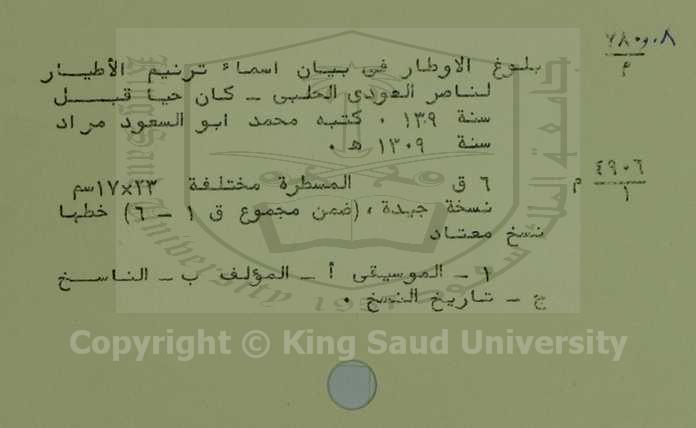 ٧٨٠٫٠٨
م
بلوغ الاوطار في بيان اسماء ترنيم الأطيار
لناصر العودى الحلبى ـ كان حيا قبل
سنة ١٣٩ ٠ كتبه محمد ابو السعود مراد
سنة ١٣٠٩ هـ ٠
٤٩٠٦
١
م
٦ ق المسطرة مختلفة ٢٣×١٧سم
نسخة جيدة ، (ضمن مجموع ق ١ ـ ٦) خطها
نسخ معتاد
١ ـ الموسيقى أ ـ المؤلف ب ـ الناسخ
ج ـ تاريخ النسخ ٠
Copyright © King Saud University